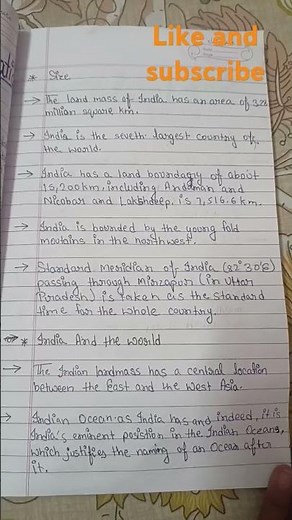 Like and
subscribe
* Size
→ The land mass of India has an area of 3.28
million square km.
→ India is the seveth largest country of
the world.
→ India has a land boundagry of about
15,200 km, including Andaman and
Nicobar and Lakshdeep. is 7,516.6 km.
→ India is bounded by the young fold
moutains in the northwest.
→ Standard Meridian of India (82°30'E)
passing through Mirzapur (in Uttar
Pradesh) is taken as the standard
time for the whole country.
* India And the world
→ The Indian landmass has a central location
between the East and the West Asia.
→ Indian Ocean as India has and indeed, it is
India's eminent position in the Indian Oceans,
which justifies the naming of an Ocean after
it.